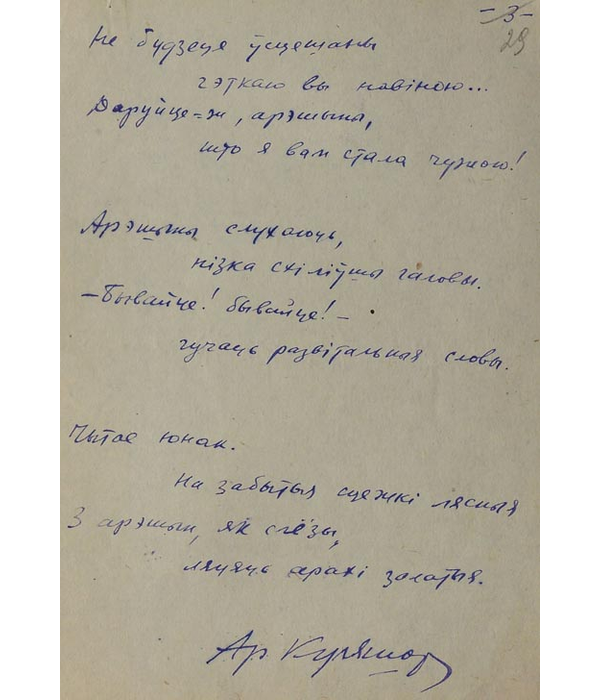 -3-
29
Не будзеце ўсцешаны
гэткаю вы навіною...
Даруйце=ж, арэшыны,
што я вам стала чужою!
Арэшыны слухаюць,
нізка схіліўшы галовы.
—Бывайце! бывайце! —
гучаць развітальныя словы.
Чытае юнак.
На забытыя сцежкі лясныя
З арэшын, як слёзы,
ляцяць арахі залатыя.
Ар. Куляшоў